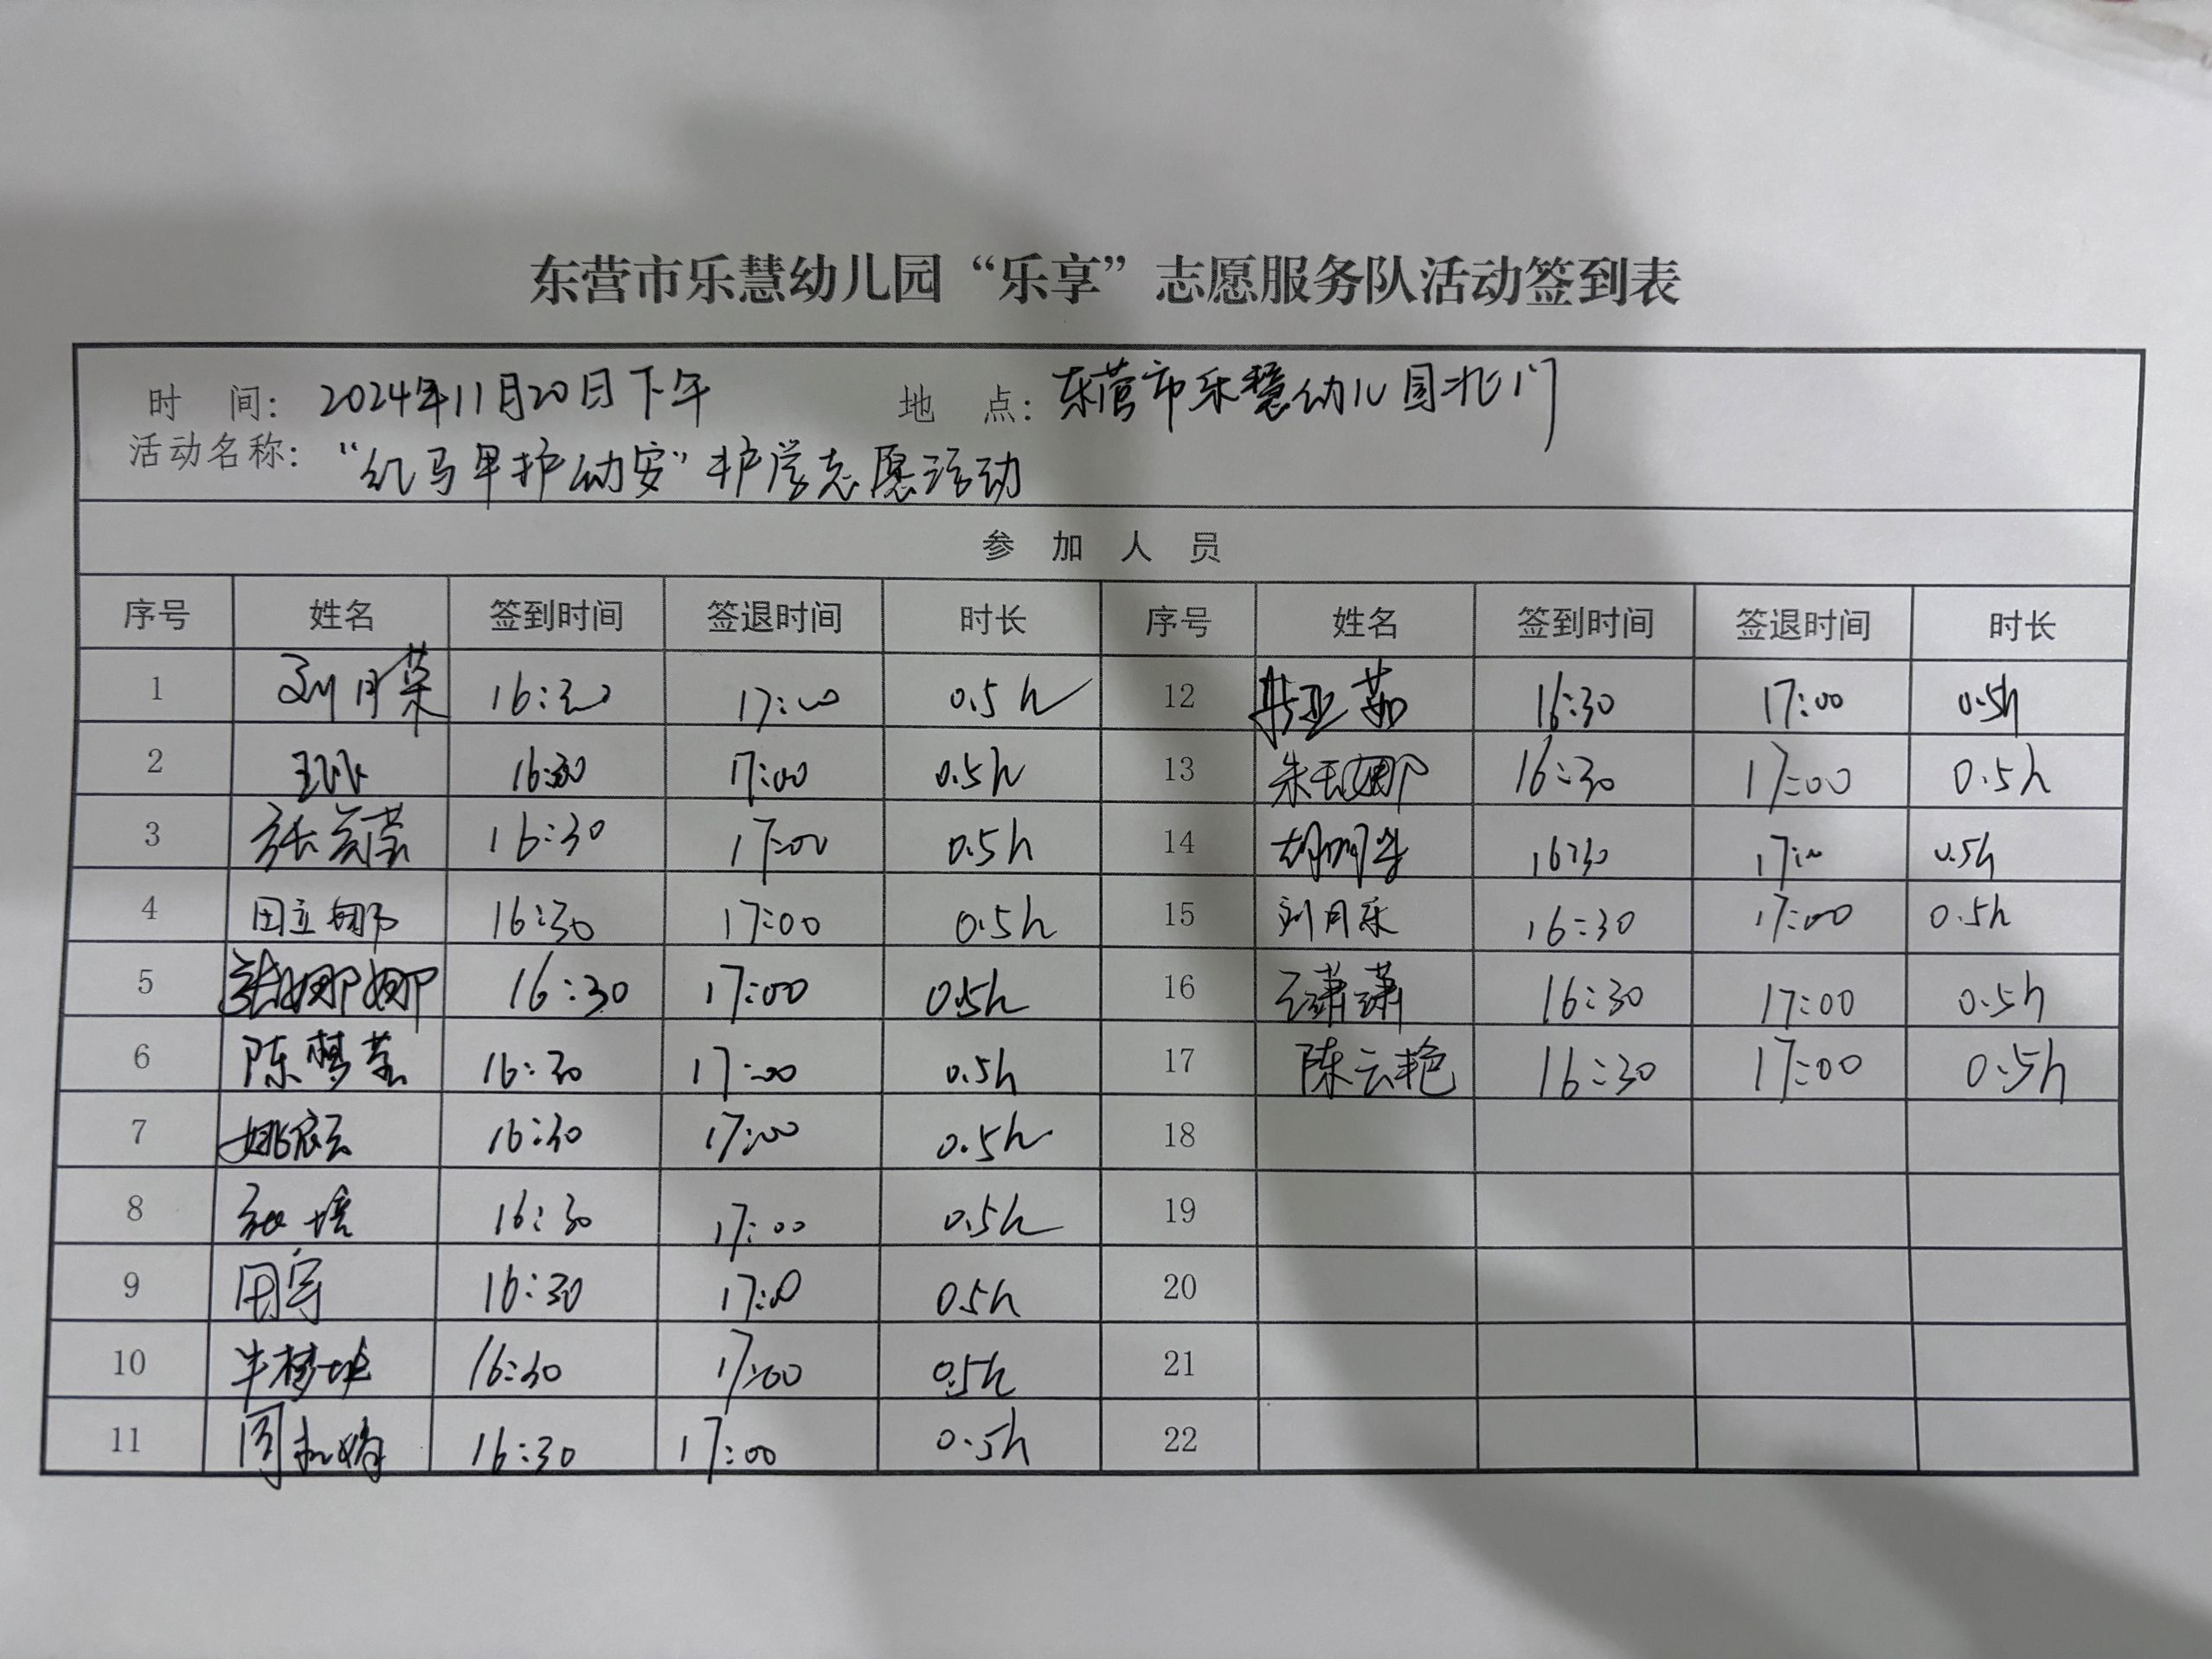 东营市乐慧幼儿园“乐享”志愿服务队活动签到表
时 间: 2024年11月20日下午 地 点: 东营市乐慧幼儿园北门
活动名称: “红马甲护幼安”护学志愿活动
参 加 人 员
序号 姓名 签到时间 签退时间 时长 序号 姓名 签到时间 签退时间 时长
1 刘月荣 16:30 17:00 0.5h 12 茹 16:30 17:00 0.5h
2 16:30 17:00 0.5h 13 朱玉娜 16:30 17:00 0.5h
3 张 莹 16:30 17:00 0.5h 14 胡 16:30 17:00 0.5h
4 田立娜 16:30 17:00 0.5h 15 刘月乐 16:30 17:00 0.5h
5 张娜娜 16:30 17:00 0.5h 16 王潇潇 16:30 17:00 0.5h
6 陈梦莹 16:30 17:00 0.5h 17 陈云艳 16:30 17:00 0.5h
7 姚 16:30 17:00 0.5h 18
8 张培 16:30 17:00 0.5h 19
9 田宇 16:30 17:00 0.5h 20
10 16:30 17:00 0.5h 21
11 周 娟 16:30 17:00 0.5h 22